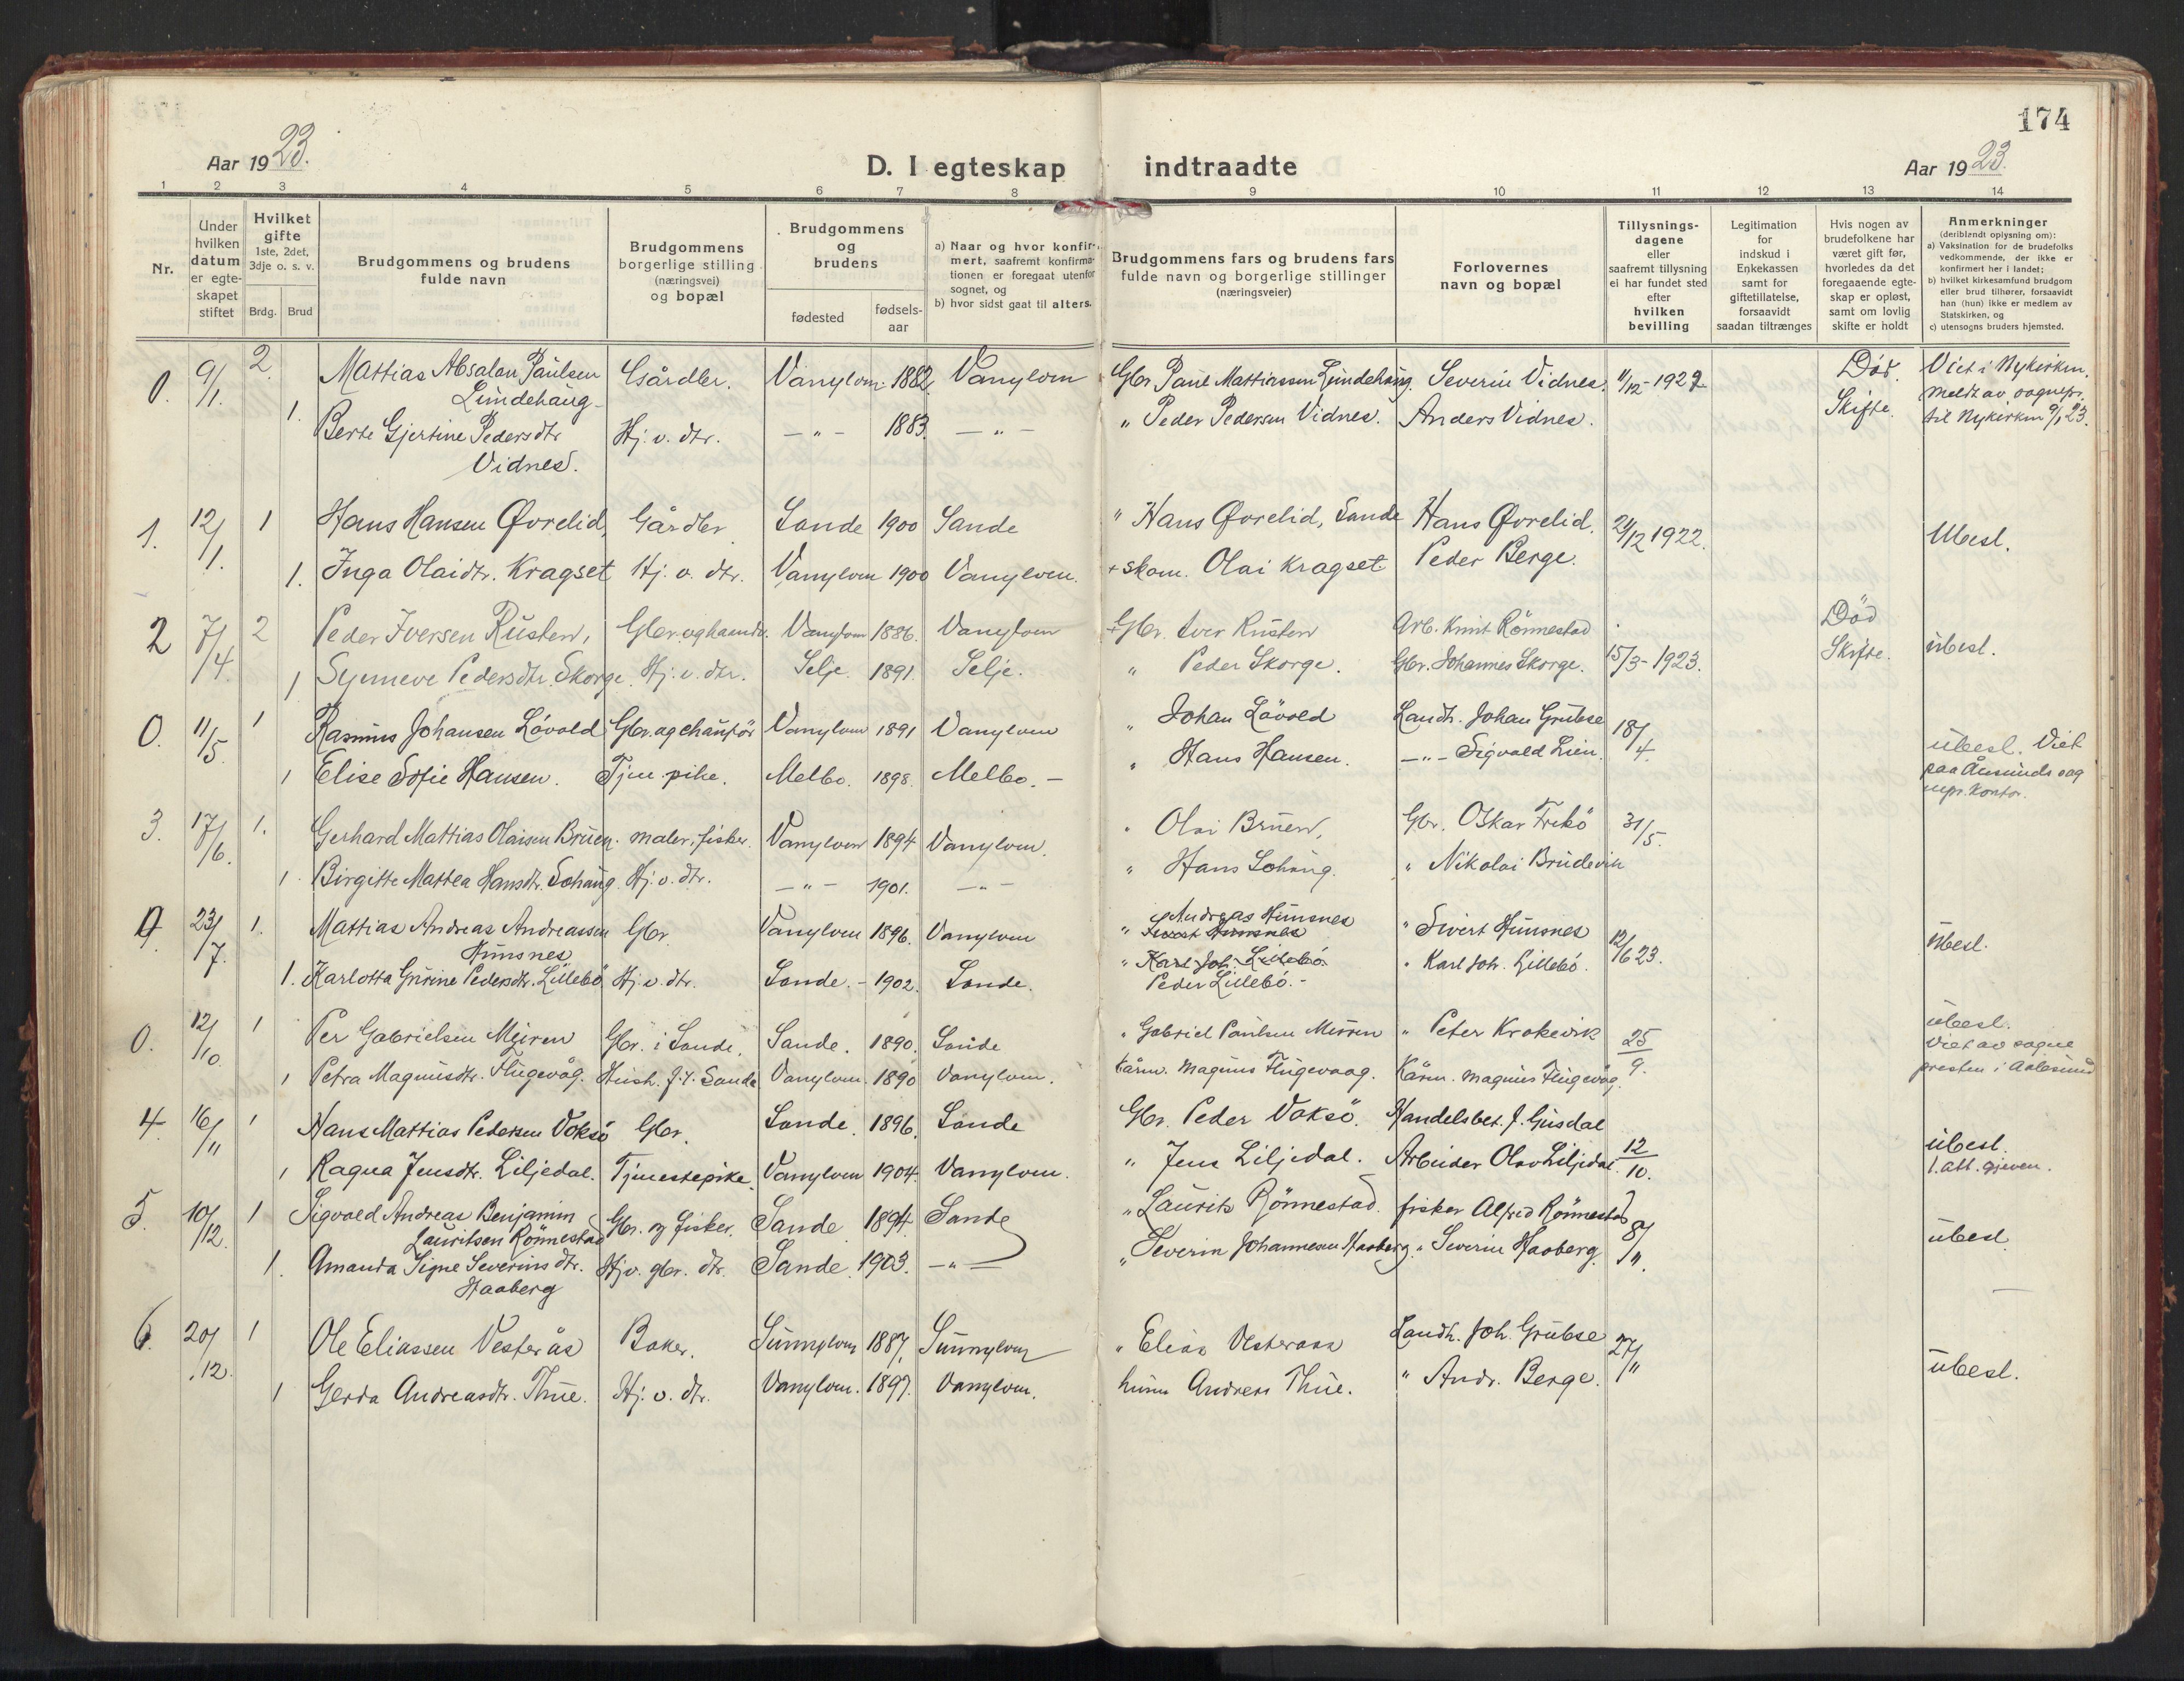 174
Aar 1923.
D. I egteskap indtraadte
Aar 1923.
1 2 3 4 5 6 7 8 9 10 11 12 13 14
Nr.
Under hvilken datum er egteskapet stiftet
Hvilket gifte 1ste, 2det, 3dje o. s. v.
Brdg. Brud
Brudgommens og brudens fulde navn
Brudgommens borgerlige stilling (næringsvei) og bopæl
Brudgommens og brudens
fødested
fødselsaar
a) Naar og hvor konfirmert, saafremt konfirmationen er foregaat utenfor sognet, og
b) hvor sidst gaat til alters.
Brudgommens fars og brudens fars fulde navn og borgerlige stillinger (næringsveier)
Forlovernes navn og bopæl
Tillysningsdagene eller saafremt tillysning ei har fundet sted efter hvilken bevilling
Legitimation for indskud i Enkekassen samt for giftetillatelse, forsaavidt saadan tiltrænges
Hvis nogen av brudefolkene har været gift før, hvorledes da det foregaaende egteskap er opløst, samt om lovlig skifte er holdt
Anmerkninger (deriblandt oplysning om):
a) Vaksination for de brudefolks vedkommende, der ikke er konfirmert her i landet;
b) hvilket kirkesamfund brudgom eller brud tilhører, forsaavidt han (hun) ikke er medlem av Statskirken, og
c) utensogns bruders hjemsted.
0. 9/1. 2. Mattias Absalon Paulsen Gårdbr. Vanylven 1882. Vanylven Gbr. Paul Mattiassen Lundehaug. Severin Vidnes. 11/12-1922 Død. Viet i Nykirken.
Lundehaug Skifte. Meldt av sognepr.
1. Berte Gjertine Pedersdtr Hj. v. dtr. — " — 1883. — " — " Peder Pedersen Vidnes. Anders Vidnes. til Nykirken 9/1 23.
Vidnes.
1. 12/1. 1 Hans Hansen Øvrelid, Gårdbr. Sande 1900 Sande " Hans Øvrelid, Sande Hans Øvrelid. 24/12 1922. Ubesl.
1. Inga Olaidtr. Kragset Hj. v. dtr. Vanylven 1900 Vanylven. + skom. Olai Kragset Peder Berge.
2 7/4. 2 Peder Iversen Rusten, Gbr. og haandv. Vanylven 1886. Vanylven + Gbr. Iver Rusten Arb. Knut Rönnestad Död
1 Synneve Pedersdtr. Skorge. Hj. v. dtr. Selje. 1891. Selje. " Peder Skorge. Gbr. Johannes Skorge. 15/3-1923. Skifte. übesl.
0. 11/5. 1 Rasmus Johansen Lövold Gbr. og chauför Vanylven 1891 Vanylven " Johan Lövold Landh. Johan Grubse 18/4.
1 Elise Sofie Hansen. Tjen. pike. Melbo. 1898. Melbo. — " Hans Hansen. — " — Sigvald Lien. übesl. Viet
paa
kontor.
3. 17/6. 1. Gerhard Mattias Olaisen Bruen. maler, fisker. Vanylven 1894 Vanylven. " Olai Bruen, Gbr. Oskar Frekö 31/5.
1 Birgitte Mattea Hansdtr. Sohaug Hj. v. dtr. — " — 1901. — " — " Hans Sohaug. " Nikolai Brudevik
0. 23/7. 1. Mattias Andreas Andreassen Gbr. Vanylven 1896. Vanylven Andreas Hunsnes " Sivert Hunsnes 12/6 23. übesl.
Hunsnes " Sivert Hunsnes
1. Karlotta Gurine Pedersdtr. Lillebö Hj. v. dtr. Sande. - 1902. Sande. " Karl Joh. Lillebö. " Karl Joh. Lillebö.
Peder Lillebö. -
0. 12/10. 1 Per Gabrielsen Myren Gbr. i Sande. Sande. 1890. Sande " Gabriel Paulsen Myren " Peter Krokevik 25/9. übesl.
1 Petra Magnusdtr. Flugevåg. Hush. Sande Vanylven. 1890 Vanylven. Kårm. Magnus Flugevaag. Kårm. Magnus Flugevåg. Viet av sogne
presten i Aalesund
4. 16/11 1 Hans Mattias Pedersen Voksö Gbr. Sande. 1896. Sande Gbr. Peder Voksö. Handelsbet. J. Gusdal
1 Ragna Jensdtr. Liljedal. Tjenestepike. Vanylven 1904. Vanylven. " Jens Liljedal. Arbeider Olav Liljedal. 12/10. übesl.
1. att. gjeven.
5. 10/12. 1 Sigvald Andreas Benjamin Gbr. og fisker. Sande 1894. Sande " Laurits Rönnestad. fisker Alfred Rönnestad 8/11. übesl.
Lauritsen Rönnestad
1. Amanda Signe Severinsdtr. Hj. v. gbr. dtr. Sande. 1903. — " — " Severin Johannesen Haaberg. " Severin Haaberg.
Haaberg
6. 20/12. 1 Ole Eliassen Vesterås Baker. Sunnylven 1887. Sunnylven " Elias Vesteraas Landh. Joh. Grubse 27/11 übesl.
1 Gerda Andreasdtr. Thue. Hj. v. dtr. Vanylven. 1897. Vanylven. Andreas Thue. " Andr. Berge.